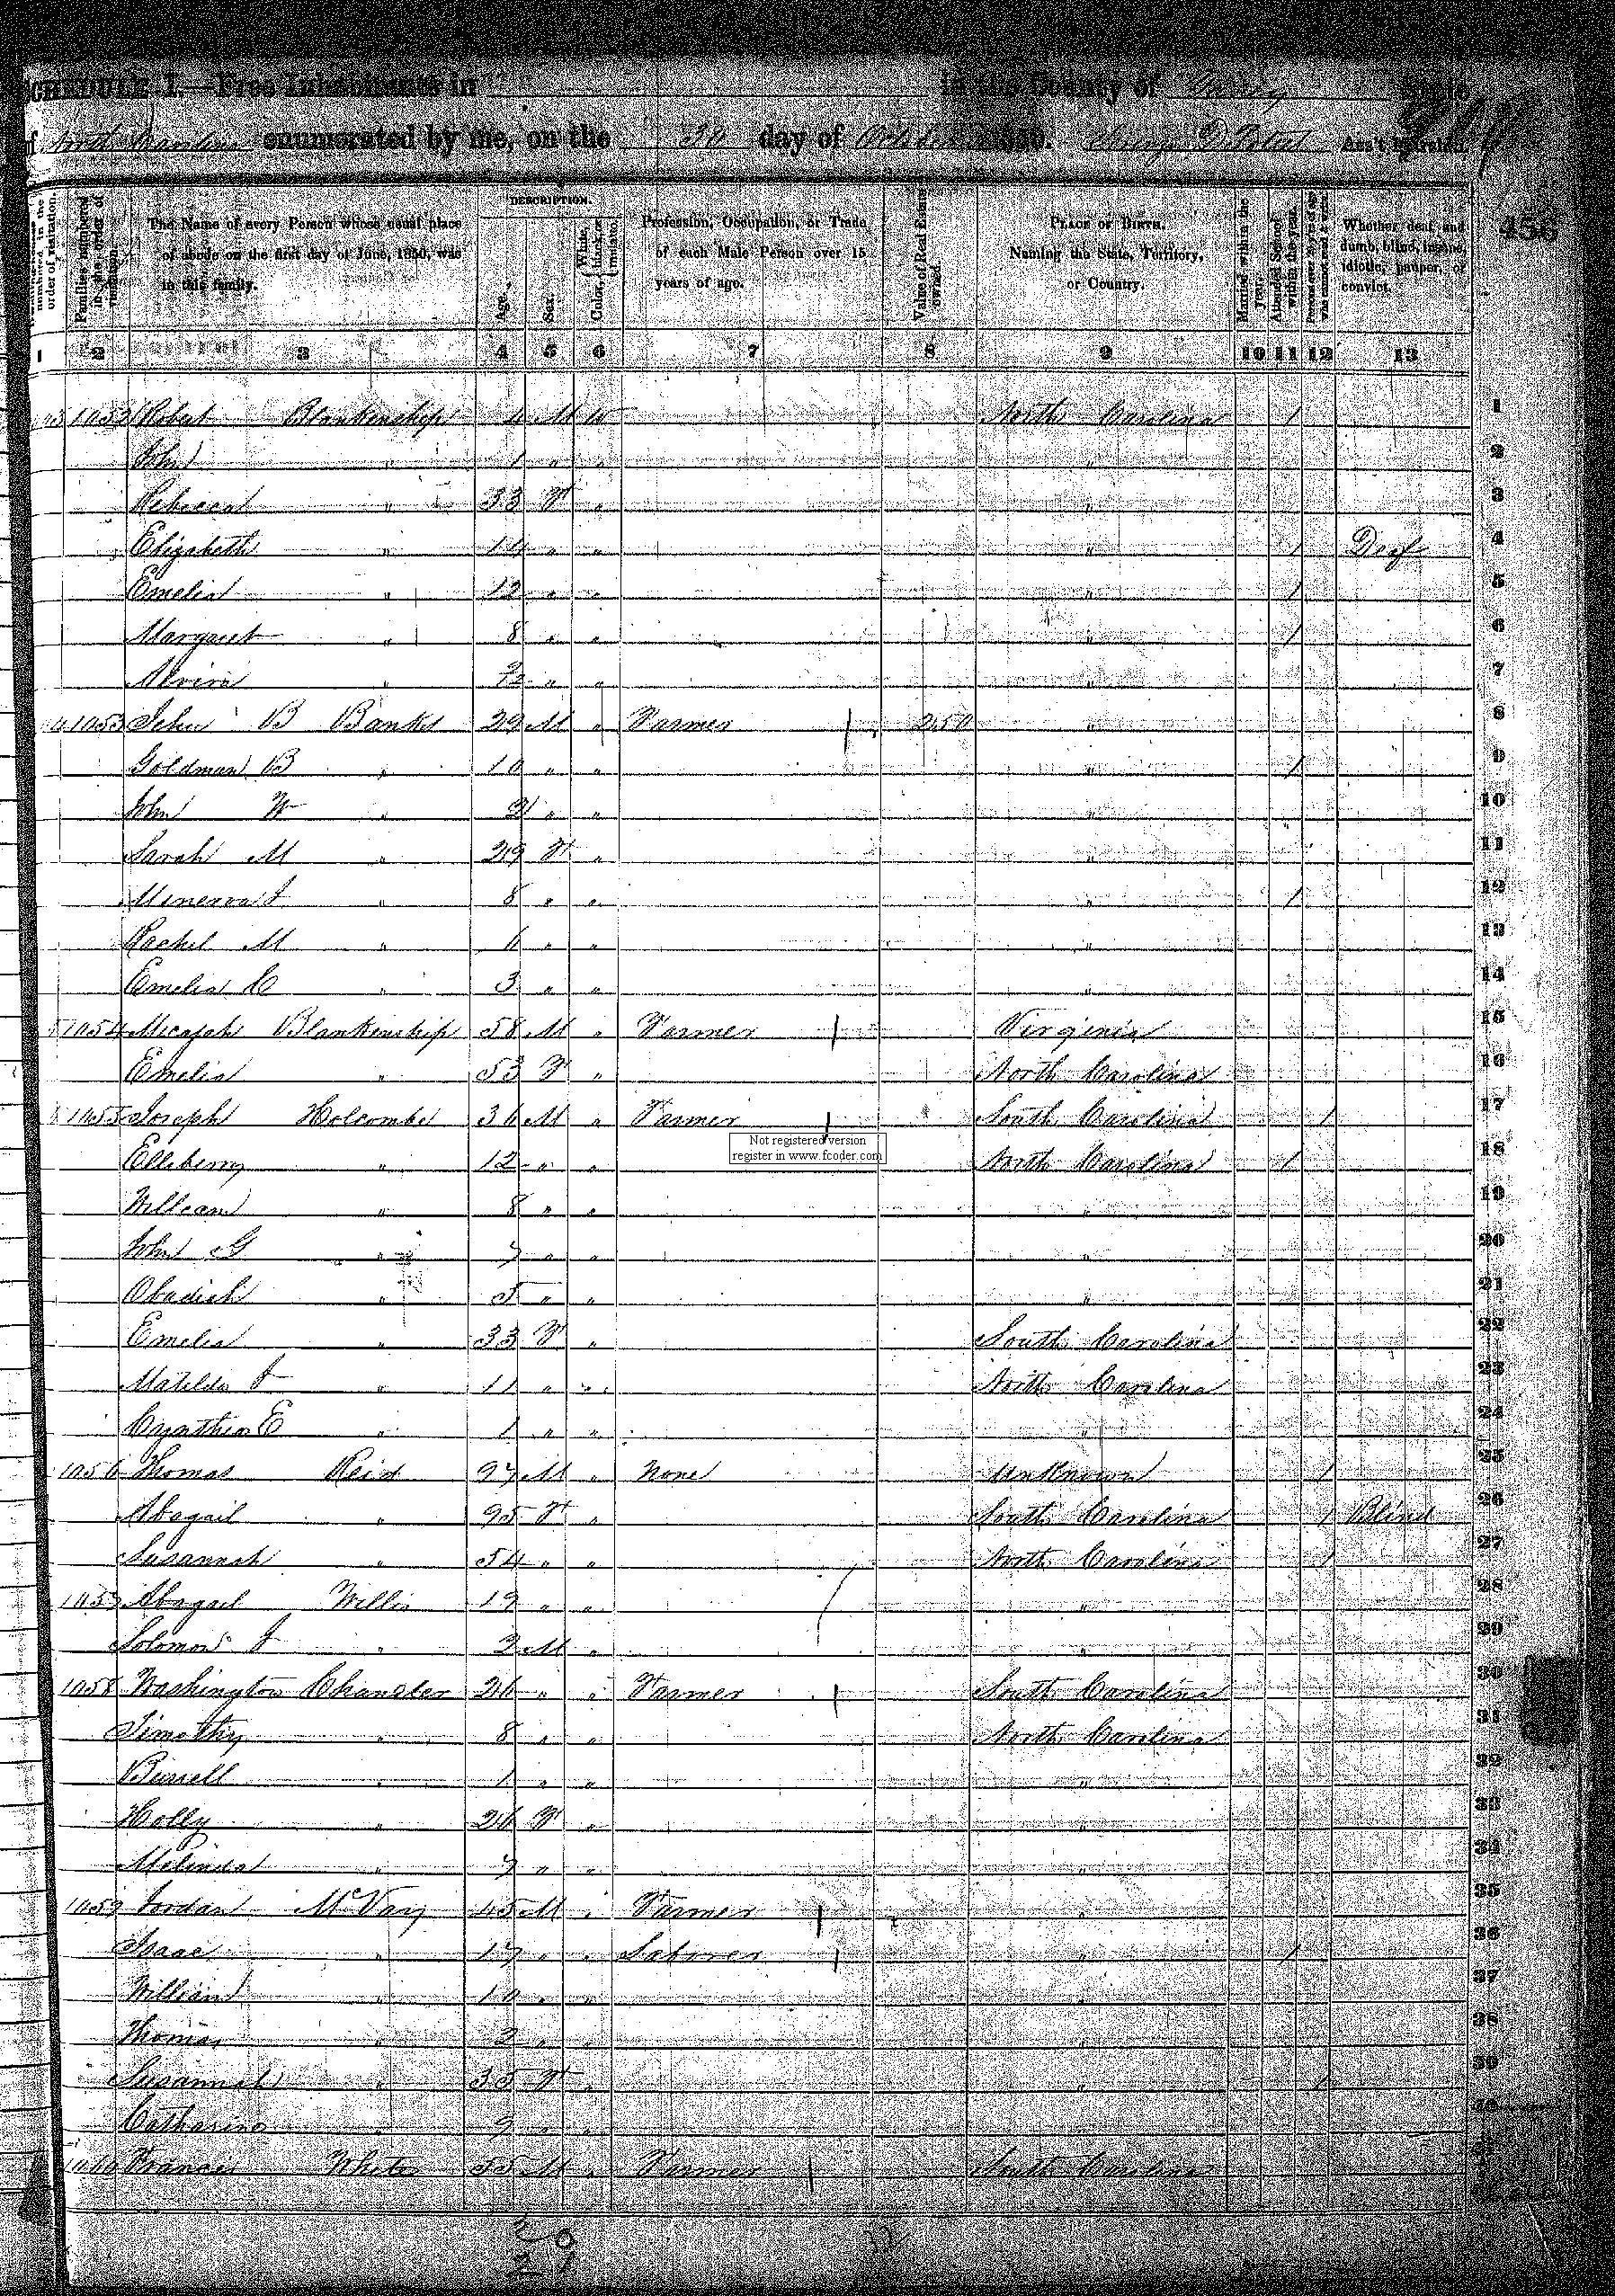 SCHEDULE I.—Free Inhabitants in in the County of Yancey State
of North Carolina enumerated by me, on the 30 day of October 1850. Ass't Marshal.
456
DESCRIPTION.
Families numbered in the order of visitation.
The Name of every Person whose usual place of abode on the first day of June, 1850, was in this family.
Age.
Sex.
Color, { White, black, or mulatto.
Profession, Occupation, or Trade of each Male Person over 15 years of age.
Value of Real Estate owned.
PLACE OF BIRTH. Naming the State, Territory, or Country.
Married within the year.
Attended School within the year.
Persons over 20 y'rs of age who cannot read & write.
Whether deaf and dumb, blind, insane, idiotic, pauper, or convict.
1 2 3 4 5 6 7 8 9 10 11 12 13
1052 Robert Blankenship 4 M W North Carolina 1 1
John " 1 " " " 2
Rebecca " 33 F " " 3
Elizabeth " 14 " " " 1 Deaf 4
Emelia " 12 " " " 1 5
Margaret " 8 " " " 1 6
" " " " 7
1053 B Banks 29 M " Farmer 250 " 8
Goldman B " 10 " " " 1 9
John W " 2 " " " 10
Sarah M " 29 F " " 11
Minerva J " 8 " " " 1 12
Rachel M " 6 " " " 13
Emelia C " 3 " " " 14
1054 Micajah Blankenship 58 M " Farmer Virginia 15
Emelia " 53 F " North Carolina 16
1055 Joseph Holcombe 36 M " Farmer South Carolina 1 17
Not registered version
register in www.fcoder.com
Ellsberry " 12 " " North Carolina 1 18
William " 8 " " " 19
John G " 7 " " " 20
Obadiah " 5 " " " 21
Emelia " 33 F " South Carolina 22
Matilda J " 11 " " North Carolina 23
Cynthia E " 1 " " " 24
1056 Thomas Reid 97 M " None Unknown 1 25
Abagail " 95 F " South Carolina 1 Blind 26
Susannah " 54 " " North Carolina 1 27
1057 Abagail Willis 19 " " " 28
Solomon J " 2 M " " 29
1058 Washington Chandler 26 " " Farmer South Carolina 30
Timothy " 8 " " North Carolina 31
Burrell " 1 " " " 32
Holly " 26 F " " 33
Milinda " 7 " " " 34
1059 Jordan McVay 45 M " Farmer " 35
Isaac " 17 " " Laborer " 1 36
William " 10 " " " 37
Thomas " 2 " " " 38
Susannah " 35 F " " 1 39
Catharine " 9 " " 40
1060 Francis White 55 M " Farmer South Carolina